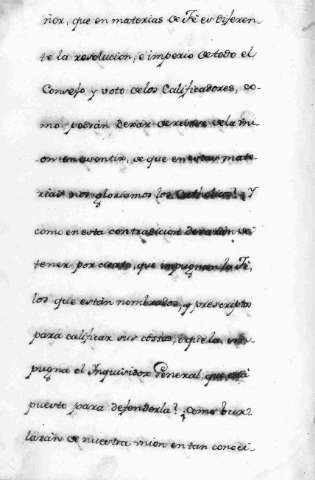 ñor, que en materias de Fé es diferen-
te la resolucion, e imperio de todo el
Consejo y voto de los Calificadores, co-
mo podrán dexar de reirse de la
en de que en estas mate-
rias nos gloriamos los Catholicos? Y
como en esta contradicion dexarán de
tener, por cierto, que impugnan la Fé,
los que están nombrados, y prescriptos
para calificar sus cosas, ó que la im-
pugna el Inquisidor General, que está
puesto para defenderla? como bur-
larán de nuestra union en tan conoci-